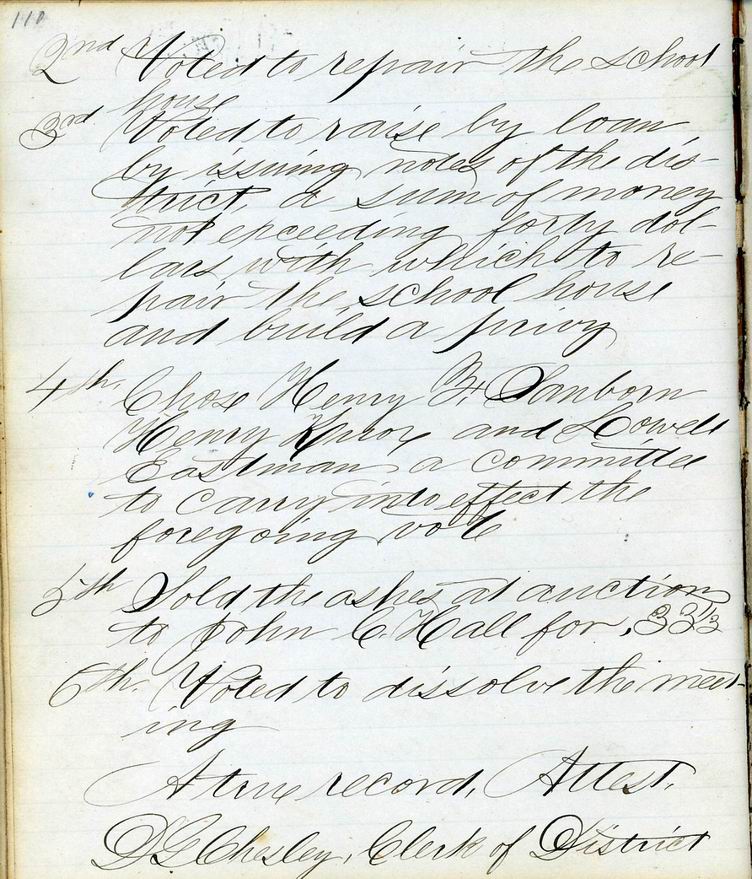 110
2nd Voted to repair the school
house
3rd Voted to raise by loan,
by issuing notes of the dis-
trict, a sum of money
not exceeding forty dol-
lars with which to re-
pair the school house
and build a privy
4th. Chose Henry F. Sanborn
Henry Knox, and Lowell
Eastman a committee
to carry into effect the
foregoing vote
5th Sold the ashes at auction
to John C. Hall for .33⅓
6th. Voted to dissolve the meet-
ing
A true record, Attest.
D G Chesley, Clerk of District